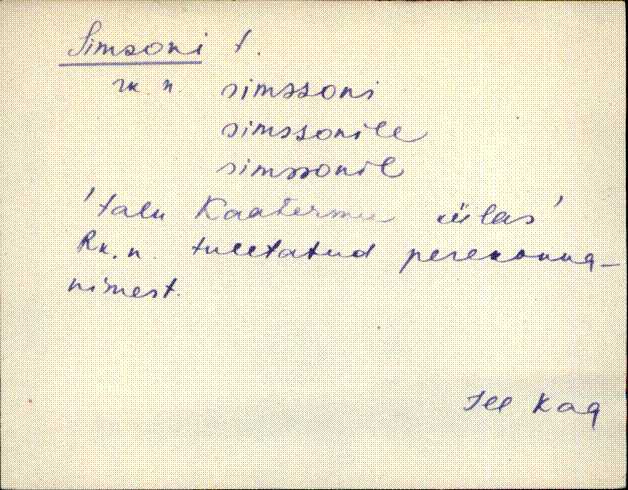 Simsoni t.
rk. n. simssoni
simssonile
simssonil
'talu Kaatermu külas'
Rk. n. tuletatud perekonna-
nimest.
Jll Kaq